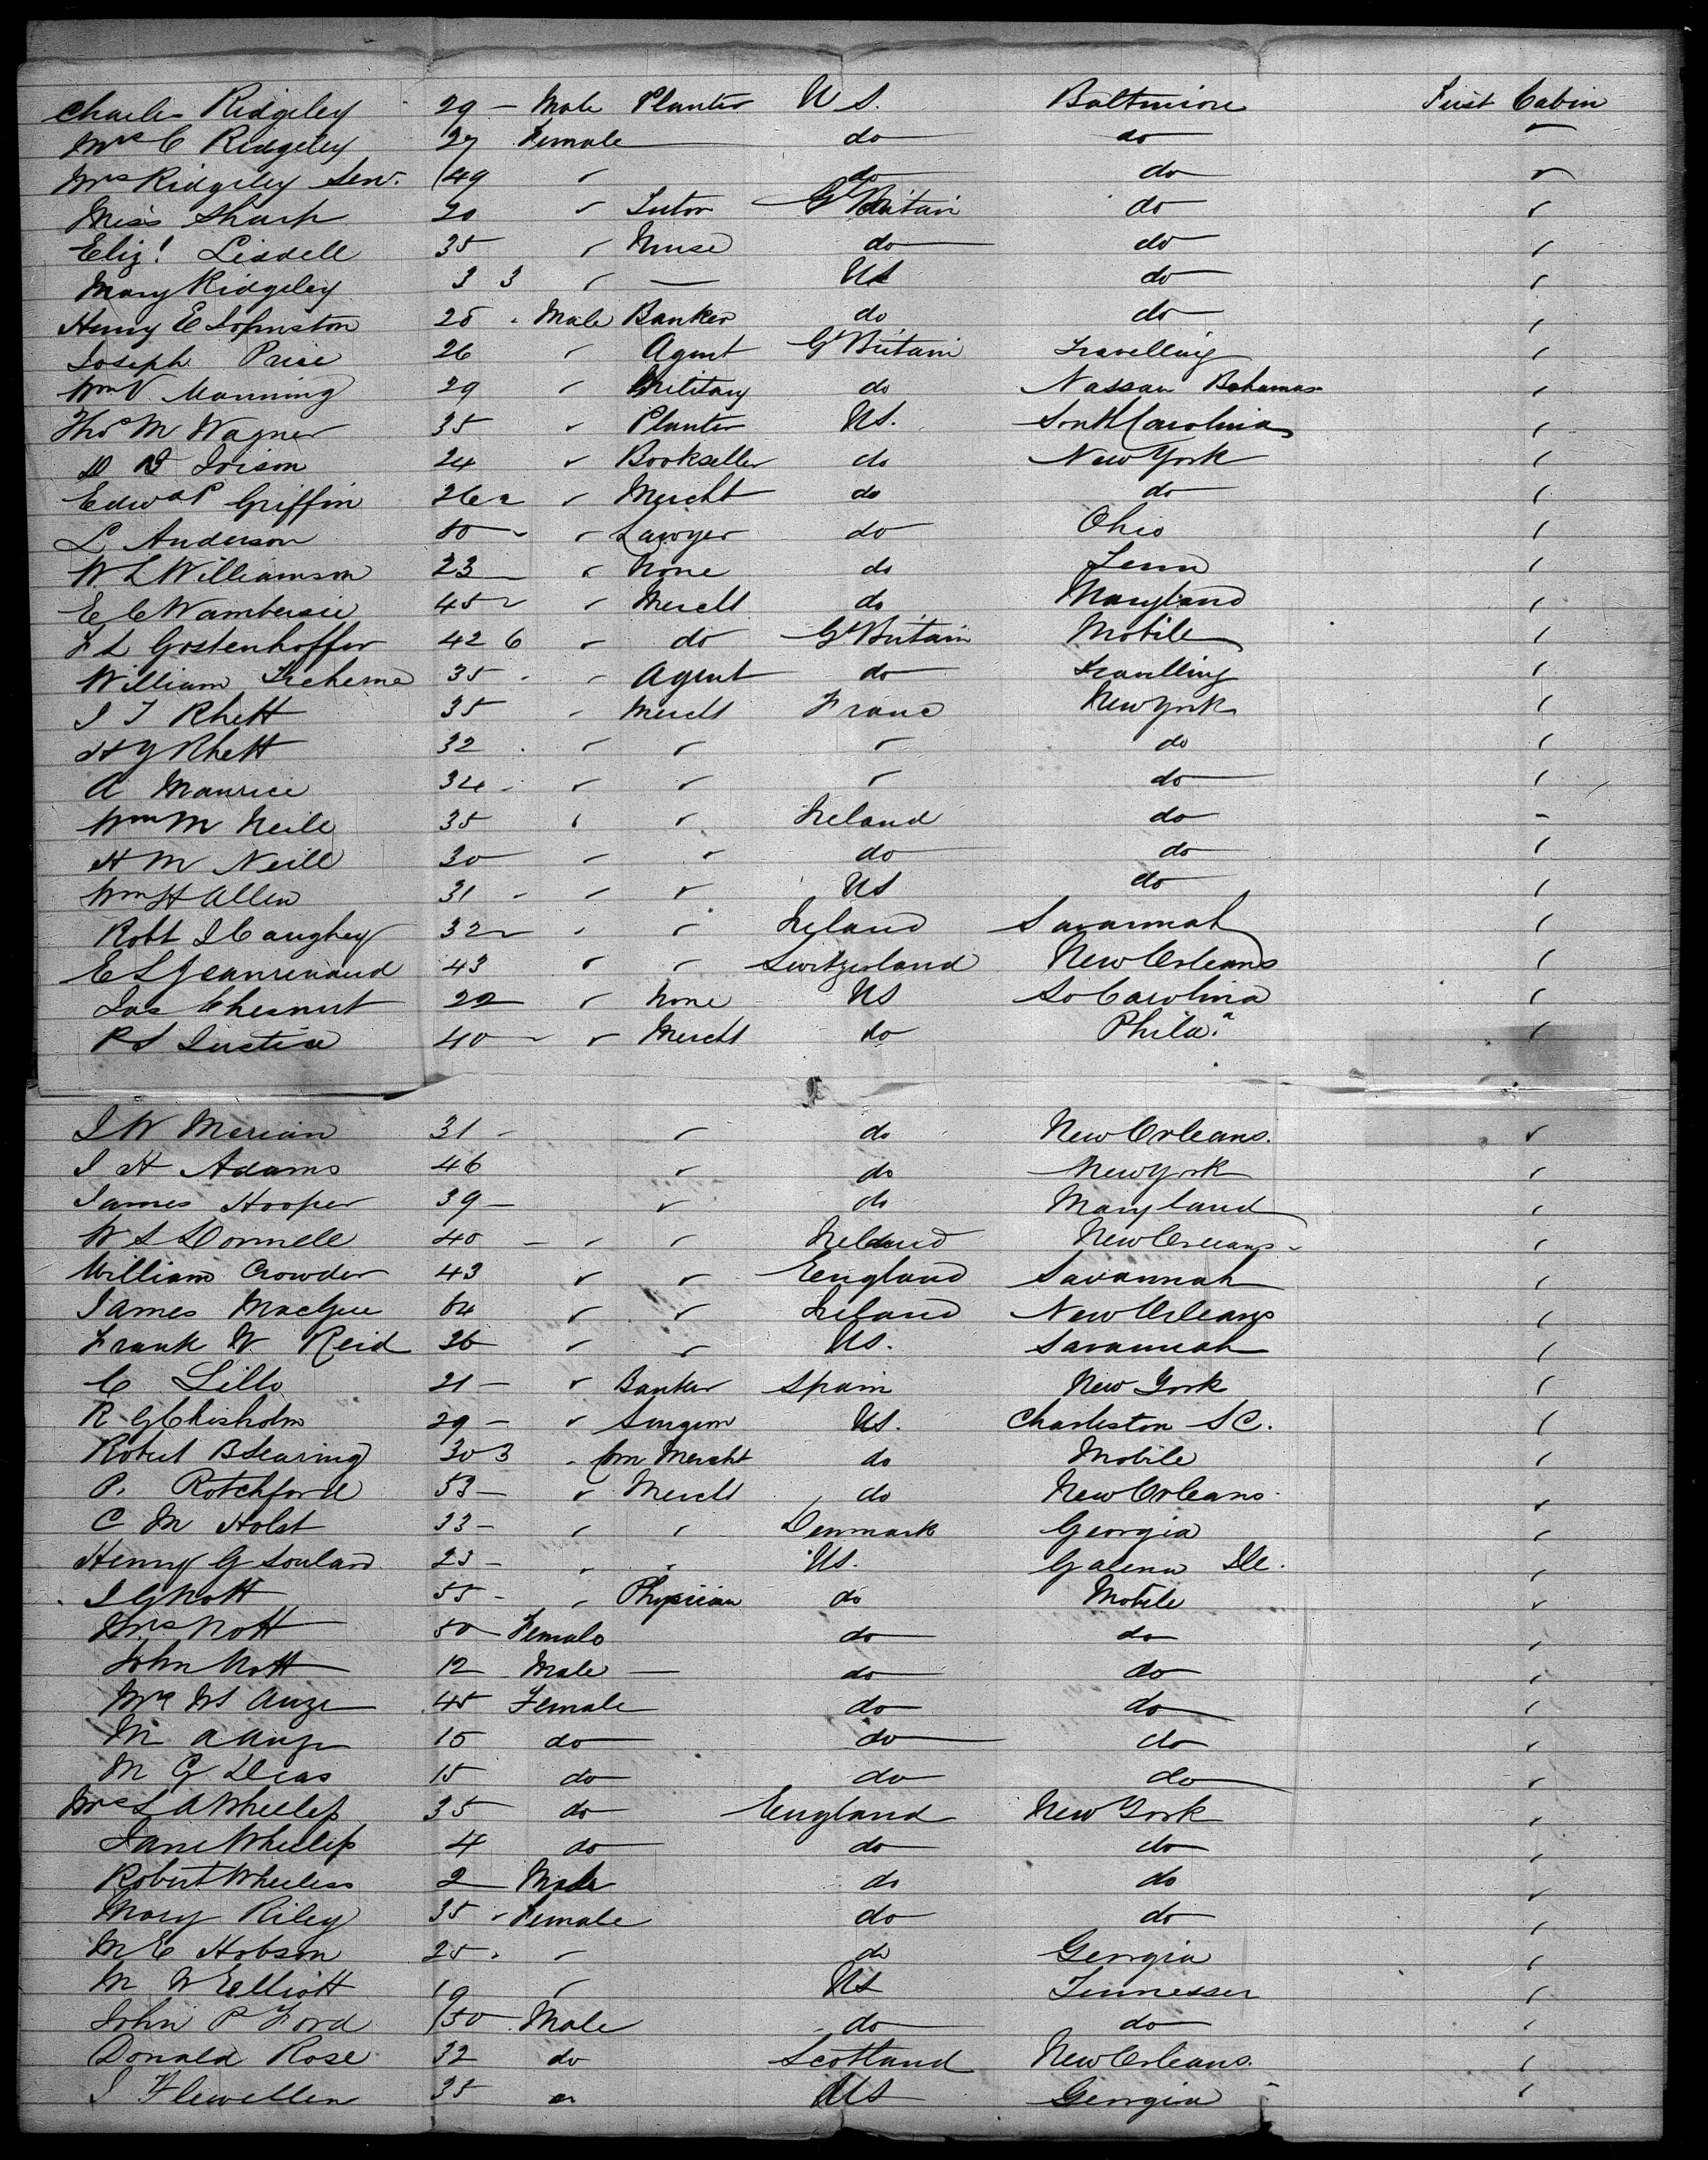 Charles Ridgeley 29 - Male Planter U S. Baltimore First Cabin
Mrs C Ridgeley 27 Female do do "
Mrs Ridgeley Senr. 49 " do do "
Miss Sharp 20 " Tutor Gt Britain do "
Eliz! Liddell 35 " Nurse do do "
Mary Ridgeley 3 3 " — US do "
Henry E Johnston 28 Male Banker do do "
Joseph Price 26 " Agent Gt Britain Travelling "
Wm V Manning 29 " Military do Nassau Bahamas "
Thos M Wagner 35 " Planter US. South Carolina "
24 " Bookseller do New York "
Edwd P Griffin 26 " Mercht do do "
L Anderson 50 - " Lawyer do Ohio "
W L Williamson 23 " None do Tenn "
E C Wambersie 45 " Mercht do Maryland "
F L Gostenhoffer 42 6 " do Gt Britain Mobile "
William 35 " Agent do Travelling "
J T Rhett 35 " Mercht France New York "
H Y Rhett 32 " " " do "
A Maurice 34 " " " do "
Wm M Neill 35 " " Ireland do "
H M Neill 30 " " do do "
Wm H Allen 31 - " " US do "
Robt J Caughey 32 " " Ireland Savannah "
E L Jeanrenaud 43 " " Switzerland New Orleans "
Jas Chesnut 22 " None US So Carolina "
R S Justice 40 - " Mercht do Phila. "
J W Merian 31 - " do New Orleans. "
J H Adams 46 " do New York "
James Hooper 39 - " do Maryland "
W S Donnell 40 - " " Ireland New Orleans "
William Crowder 43 " " England Savannah "
James MacGee 54 " " Ireland New Orleans "
Frank W Reid 26 " " US. Savannah "
C Lillo 21 - " Banker Spain New York "
R G Chisholm 29 - " Surgeon US. Charleston S C. "
Robert B Searing 30 3 " Com Mercht do Mobile "
P. Rotchford 53 - " Mercht do New Orleans "
C M Holst 33 - " " Denmark Georgia "
Henry G Soulard 23 - " " US. Galena Ill. "
J G Nott 55 - " Physician do Mobile "
Mrs Nott 50 Female do do "
John Nott 12 Male — do do "
Mrs W S Auze 45 Female do do "
M A Auze 15 do do do "
M G Deas 15 do do do "
Mrs L A Wheeless 35 do England New York "
Jane Wheeless 4 do do do "
Robert Wheeless 2 Male do do "
Mary Riley 35 Female do do "
M E Hobson 25 " do Georgia "
M W Elliott 19 " US Tennessee "
John P Ford 50 Male do do "
Donald Rose 32 do Scotland New Orleans. "
J Flewellen 35 " US Georgia "